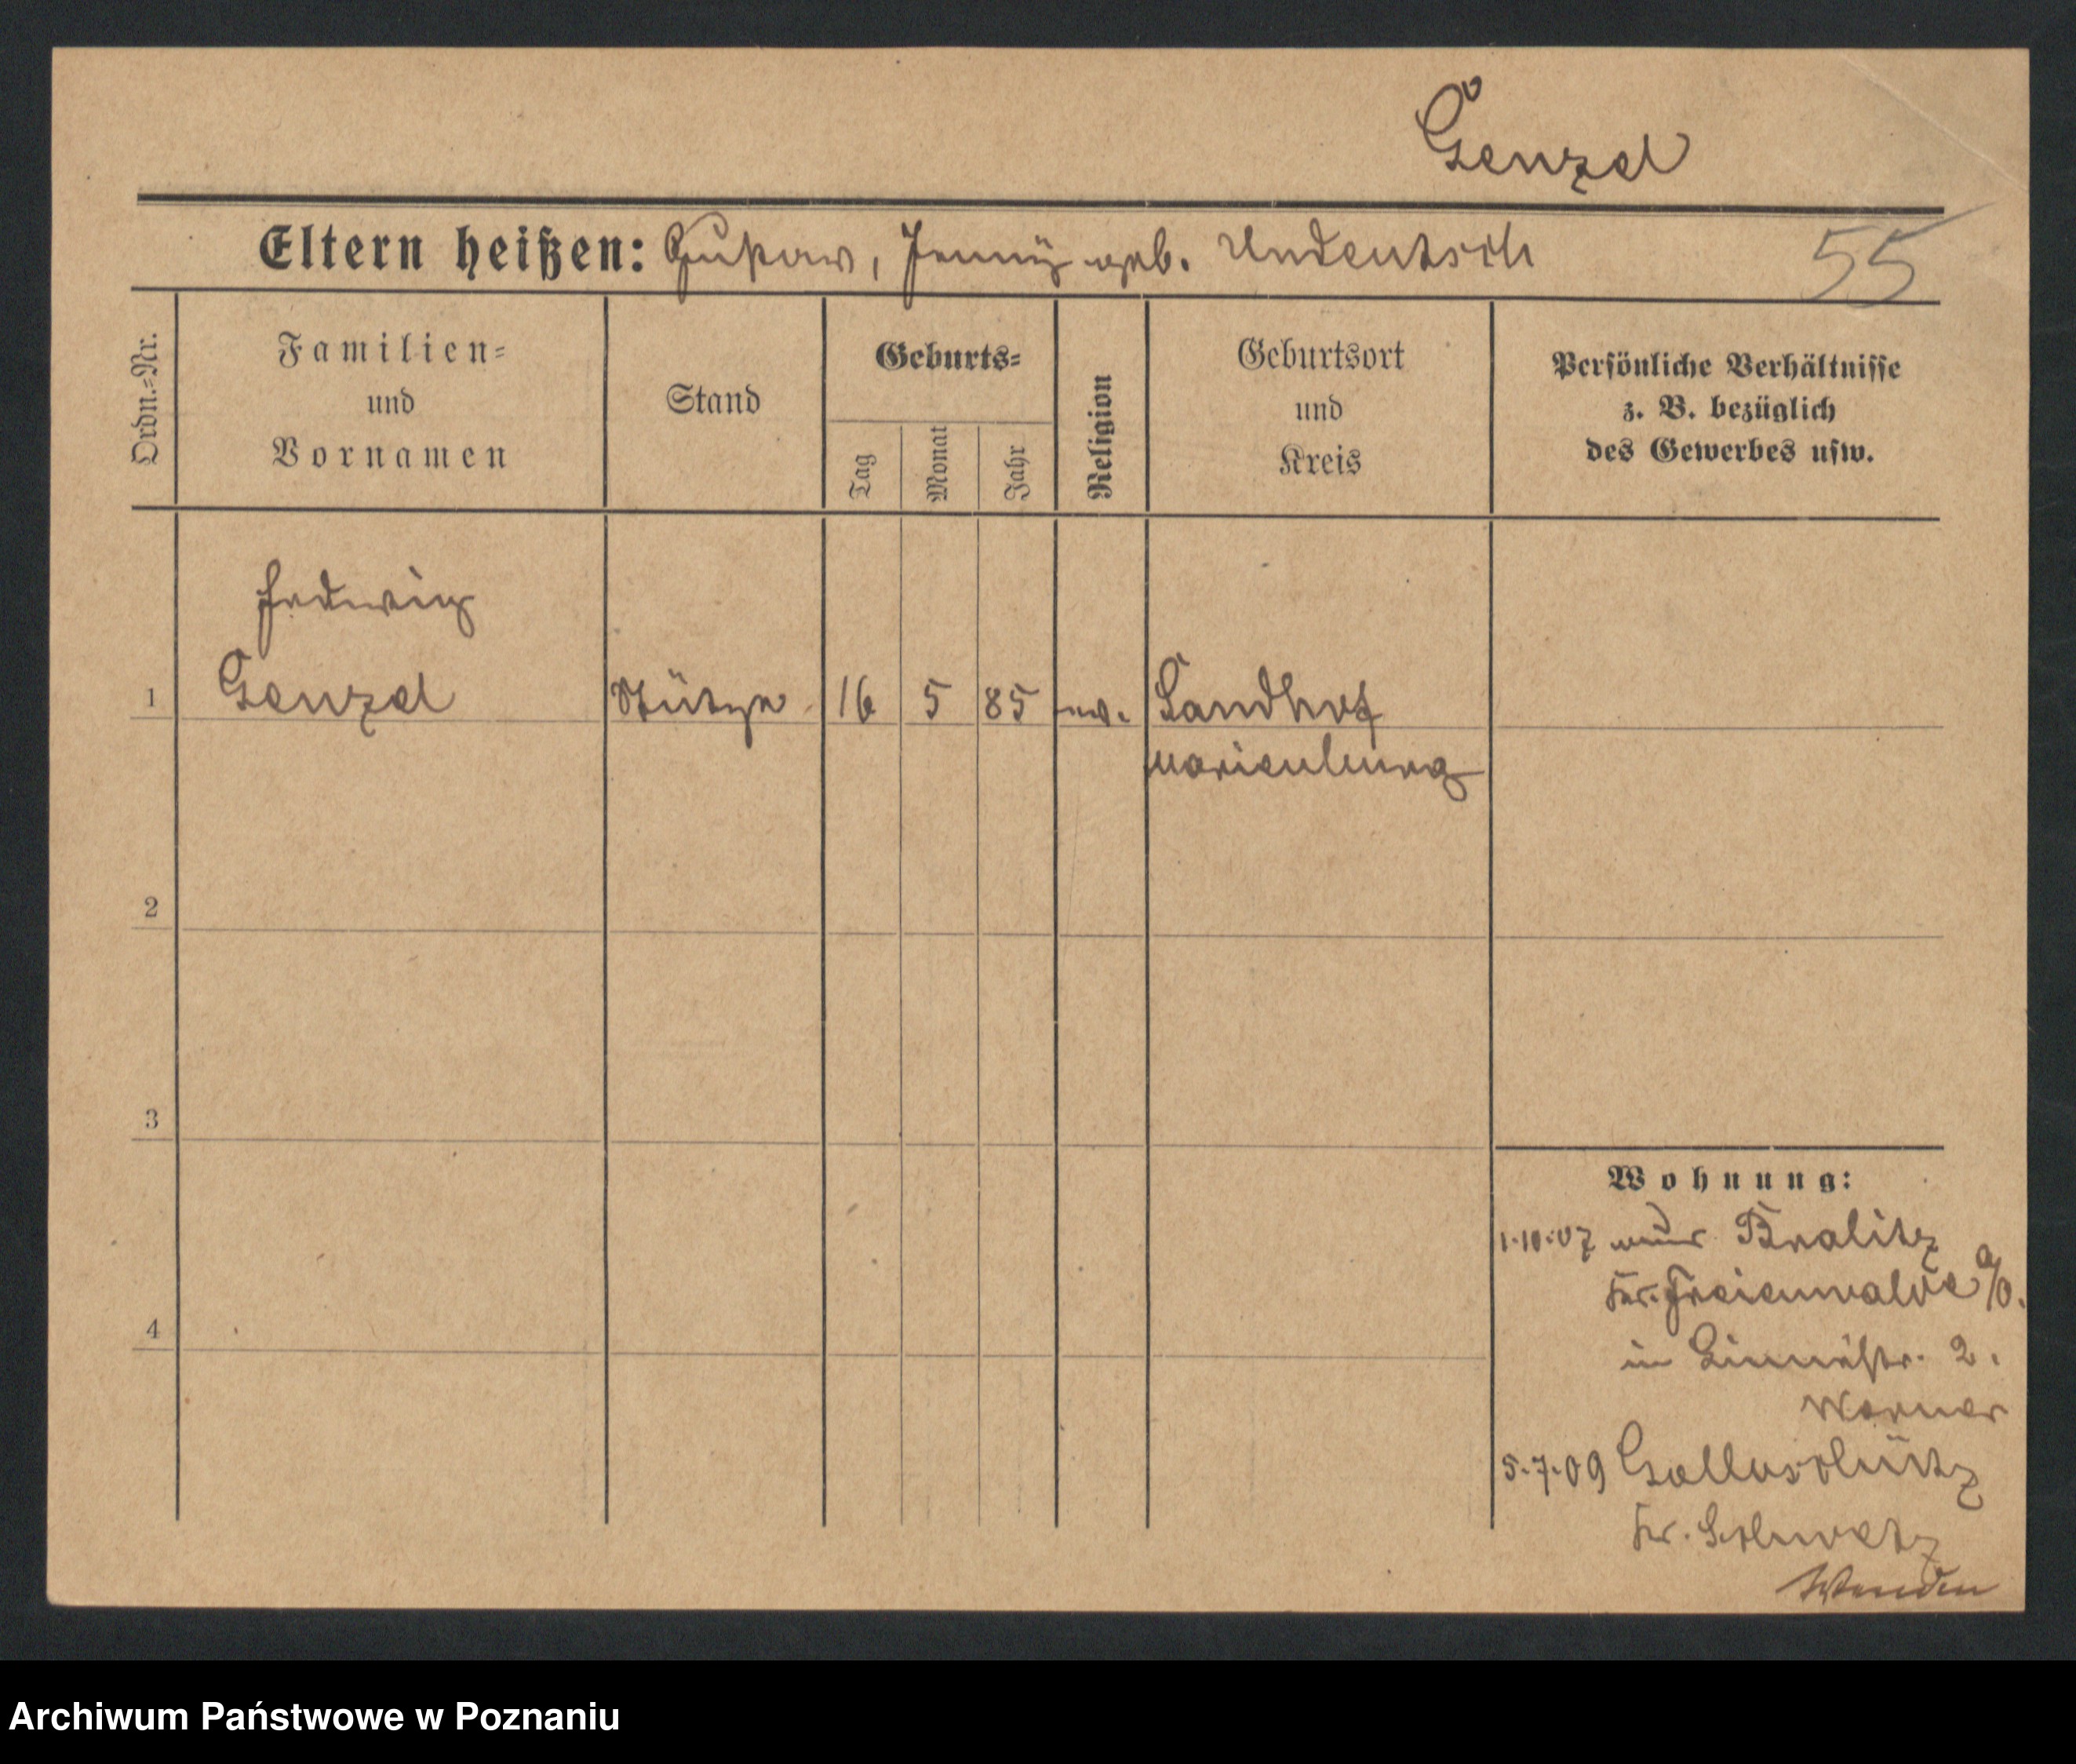 Genzel
Eltern heißen: Gustav, Jenny geb. Undeutsch
55
Ordn.-Nr.
Familien-
und
Vornamen
Stand
Geburts-
Tag
Monat
Jahr
Religion
Geburtsort
und
Kreis
Persönliche Verhältnisse
z. B. bezüglich
des Gewerbes usw.
Hedwig
1 Genzel Stütze 16 5 85 ev. Sandhof
Marienburg
2
3
4
Wohnung:
1.10.07 aus Bralitz
Kr. Freienwalde a/O.
in 2.
Werner
5.7.09
Kr. Schwetz
Wenden
Archiwum Państwowe w Poznaniu